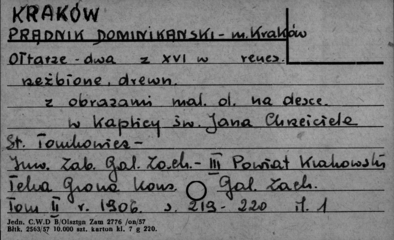 KRAKÓW
PRĄDNIK DOMINIKAŃSKI - m. Kraków
Ołtarze - dwa z XVI w renes.
rzeźbione, drewn.
z obrazami mal. ol. na desce.
w Kaplicy św. Jana Chrzciciela
St. Tomkowicz -
Inw. Zab. Gal. Zach. - III Powiat Krakowski
Teka Grona Kons. Gal. Zach.
Tom II r. 1906 s. 219 - 220 il. 1
Jedn. C.W.D B/Olsztyn Zam 2776 /on/57
Bltk. 2563/57 10.000 szt. karton kl. 7 g 220.